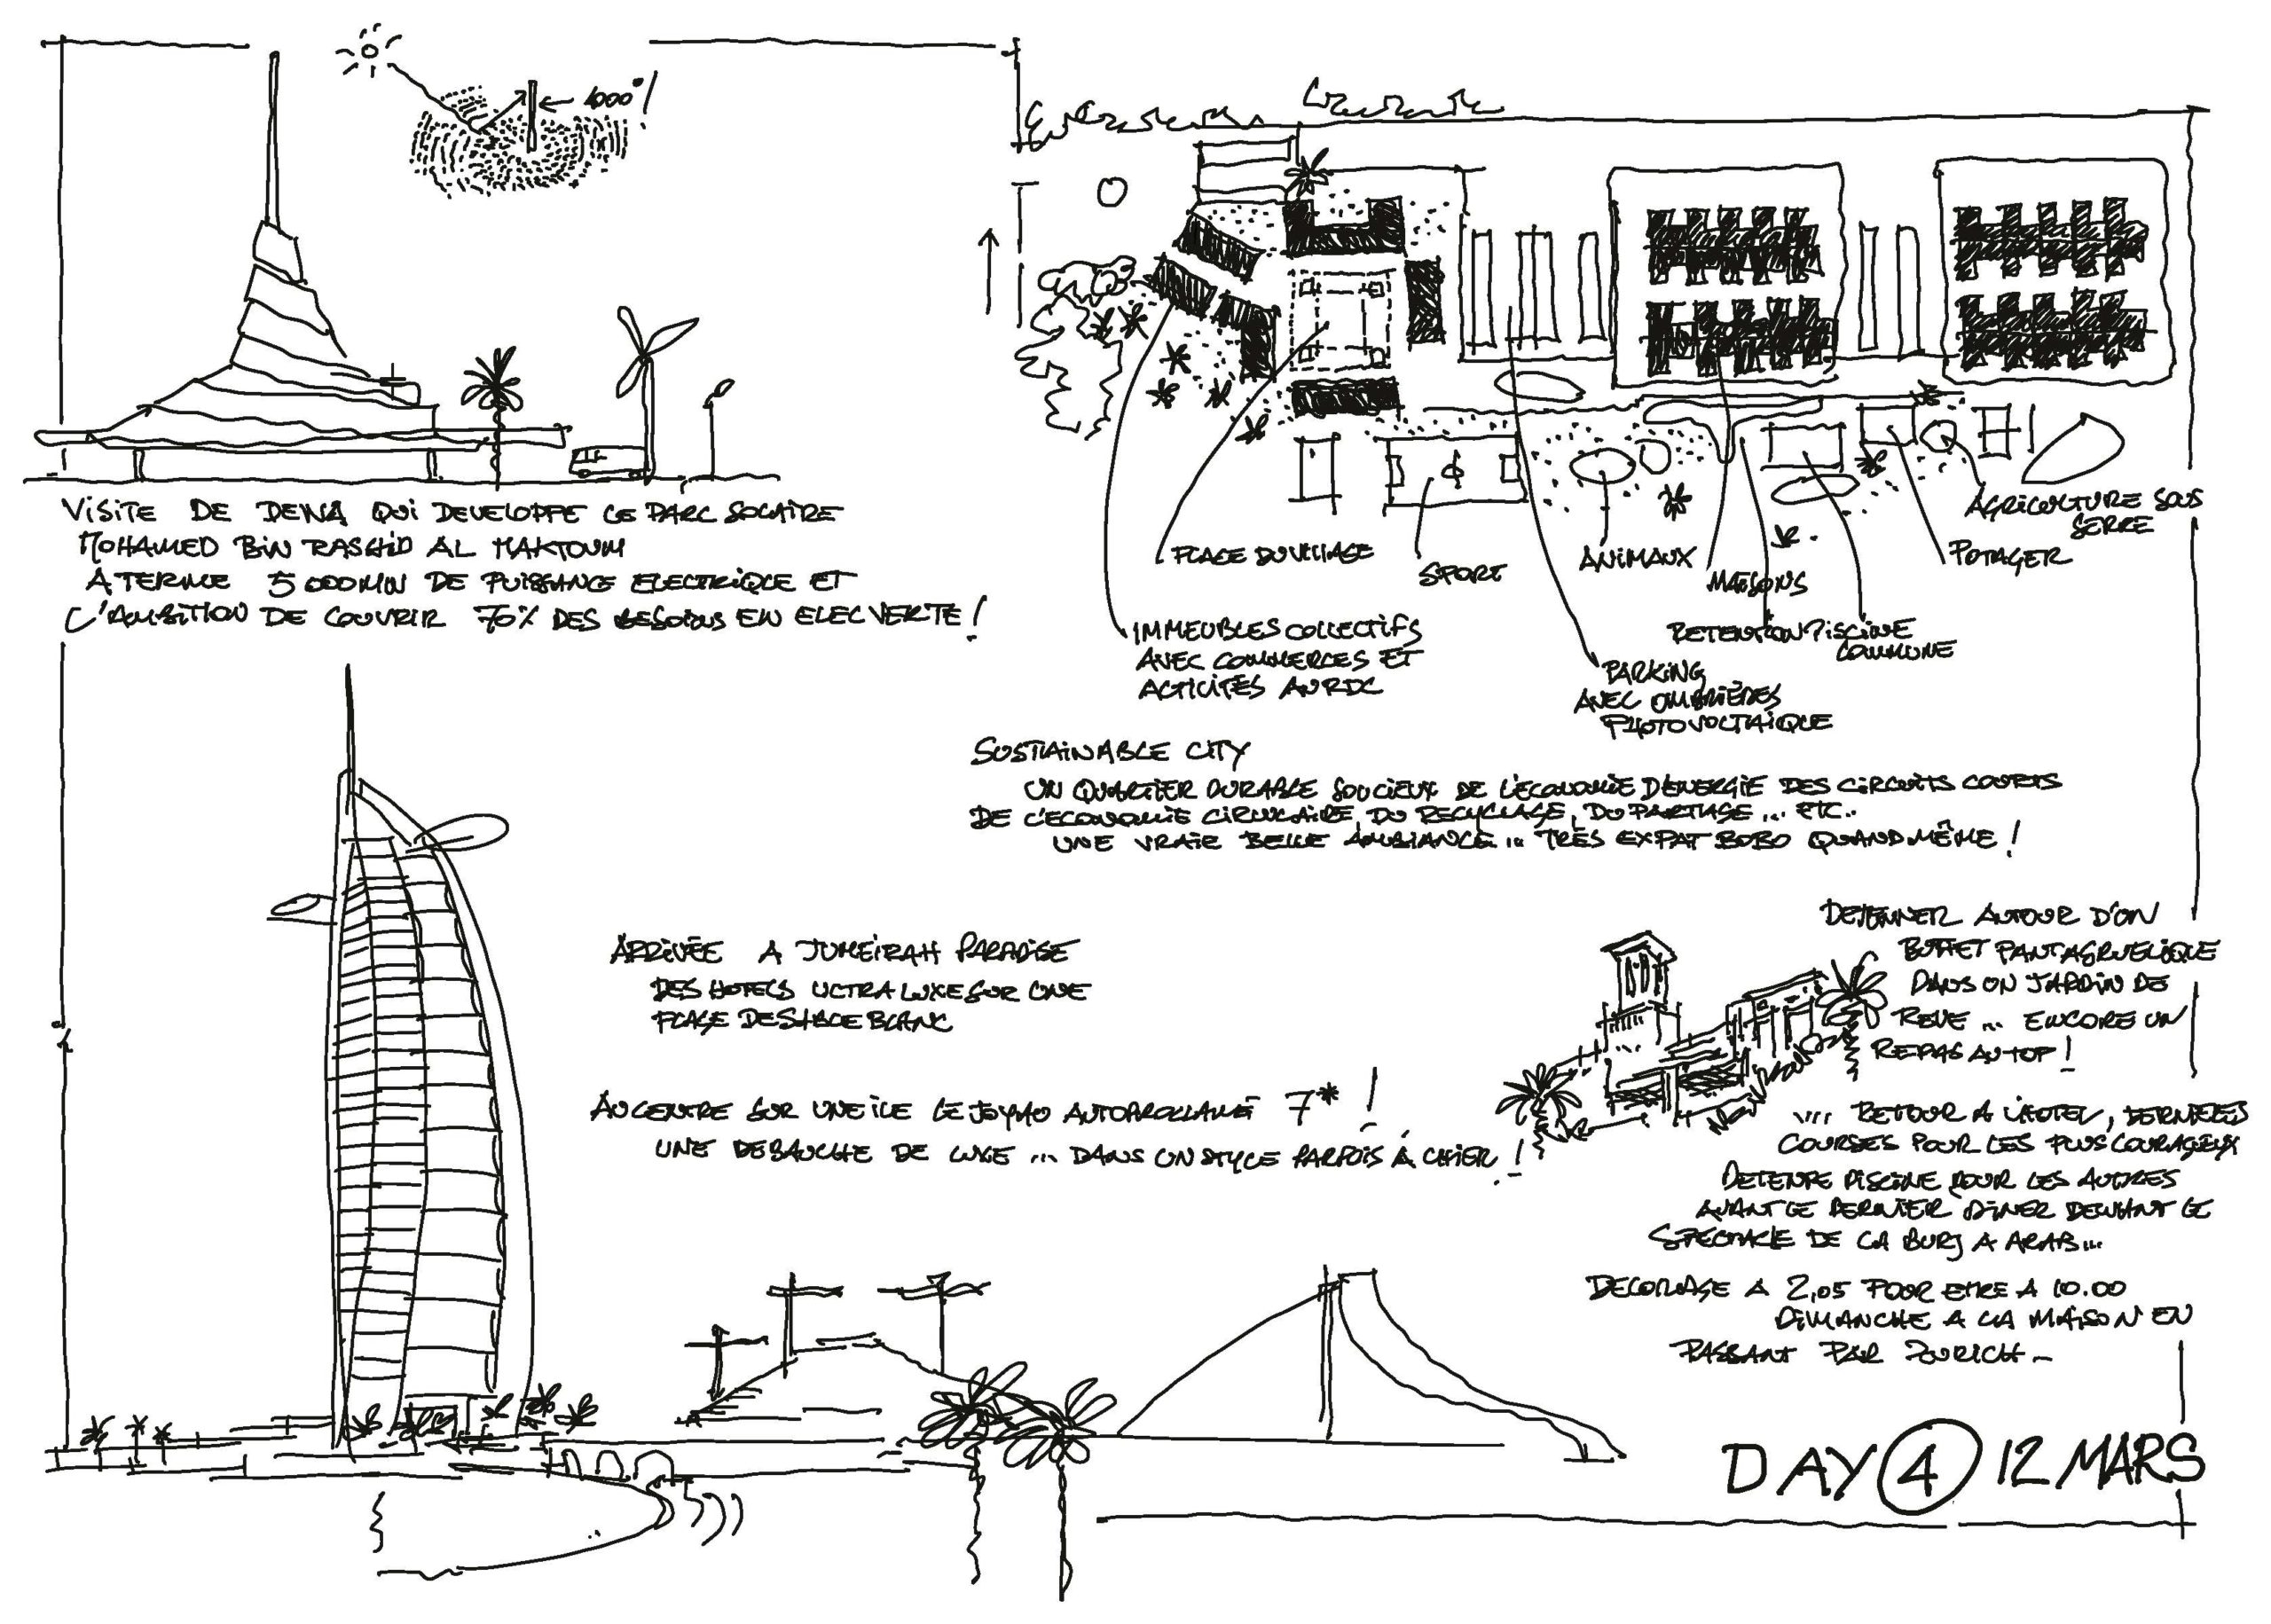 1000°!
VISITE DE DEWA QUI DEVELOPPE CE PARC SOLAIRE
MOHAMED BIN RASCHID AL MAKTOUM
A TERME 5000MW DE PUISSANCE ELECTRIQUE ET
L'AMBITION DE COUVRIR 70% DES BESOINS EN ELEC VERTE !
PLACE DU VILLAGE
SPORT
ANIMAUX
MAISONS
AGRICULTURE SOUS
SERRE
POTAGER
IMMEUBLES COLLECTIFS
AVEC COMMERCES ET
ACTIVITÉS AU RDC
RETENTION
PISCINE
COMMUNE
PARKING
AVEC OMBRIÈRES
PHOTOVOLTAIQUE
SUSTAINABLE CITY
UN QUARTIER DURABLE SOUCIEUX DE L'ECONOMIE D'ENERGIE DES CIRCUITS COURTS
DE L'ECONOMIE CIRCULAIRE, DU RECYCLAGE, DU PARTAGE ... ETC..
UNE VRAIE BELLE AMBIANCE ... TRÈS EXPAT BOBO QUAND MÊME !
ARRIVÉE A JUMEIRAH PARADISE
DES HOTELS ULTRA LUXE SUR UNE
PLAGE DE SABLE BLANC
AU CENTRE SUR UNE ILE LE JOYAU AUTOPROCLAMÉ 7* !
UNE DEBAUCHE DE LUXE ... DANS UN STYLE PARFOIS À CHIER !
DEJEUNER AUTOUR D'UN
BUFFET PANTAGRUELIQUE
DANS UN JARDIN DE
REVE ... ENCORE UN
REPAS AU TOP !
.... RETOUR A L'HOTEL, DERNIERES
COURSES POUR LES PLUS COURAGEUX
DETENTE PISCINE POUR LES AUTRES
AVANT LE DERNIER DINER DEVANT LE
SPECTACLE DE LA BURJ A ARAB ...
DECOLLAGE A 2,05 POUR ETRE A 10.00
DIMANCHE A LA MAISON EN
PASSANT PAR ZURICH -
DAY 4 12 MARS